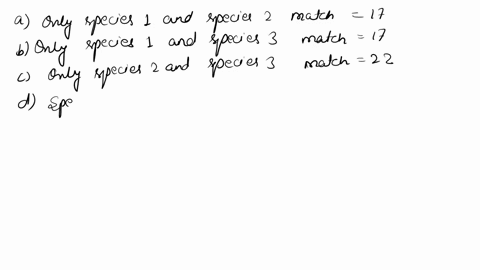 a) Only species 1 and species 2 match = 17
b) Only species 1 and species 3 match = 17
c) Only species 2 and species 3 match = 22
d) Spe